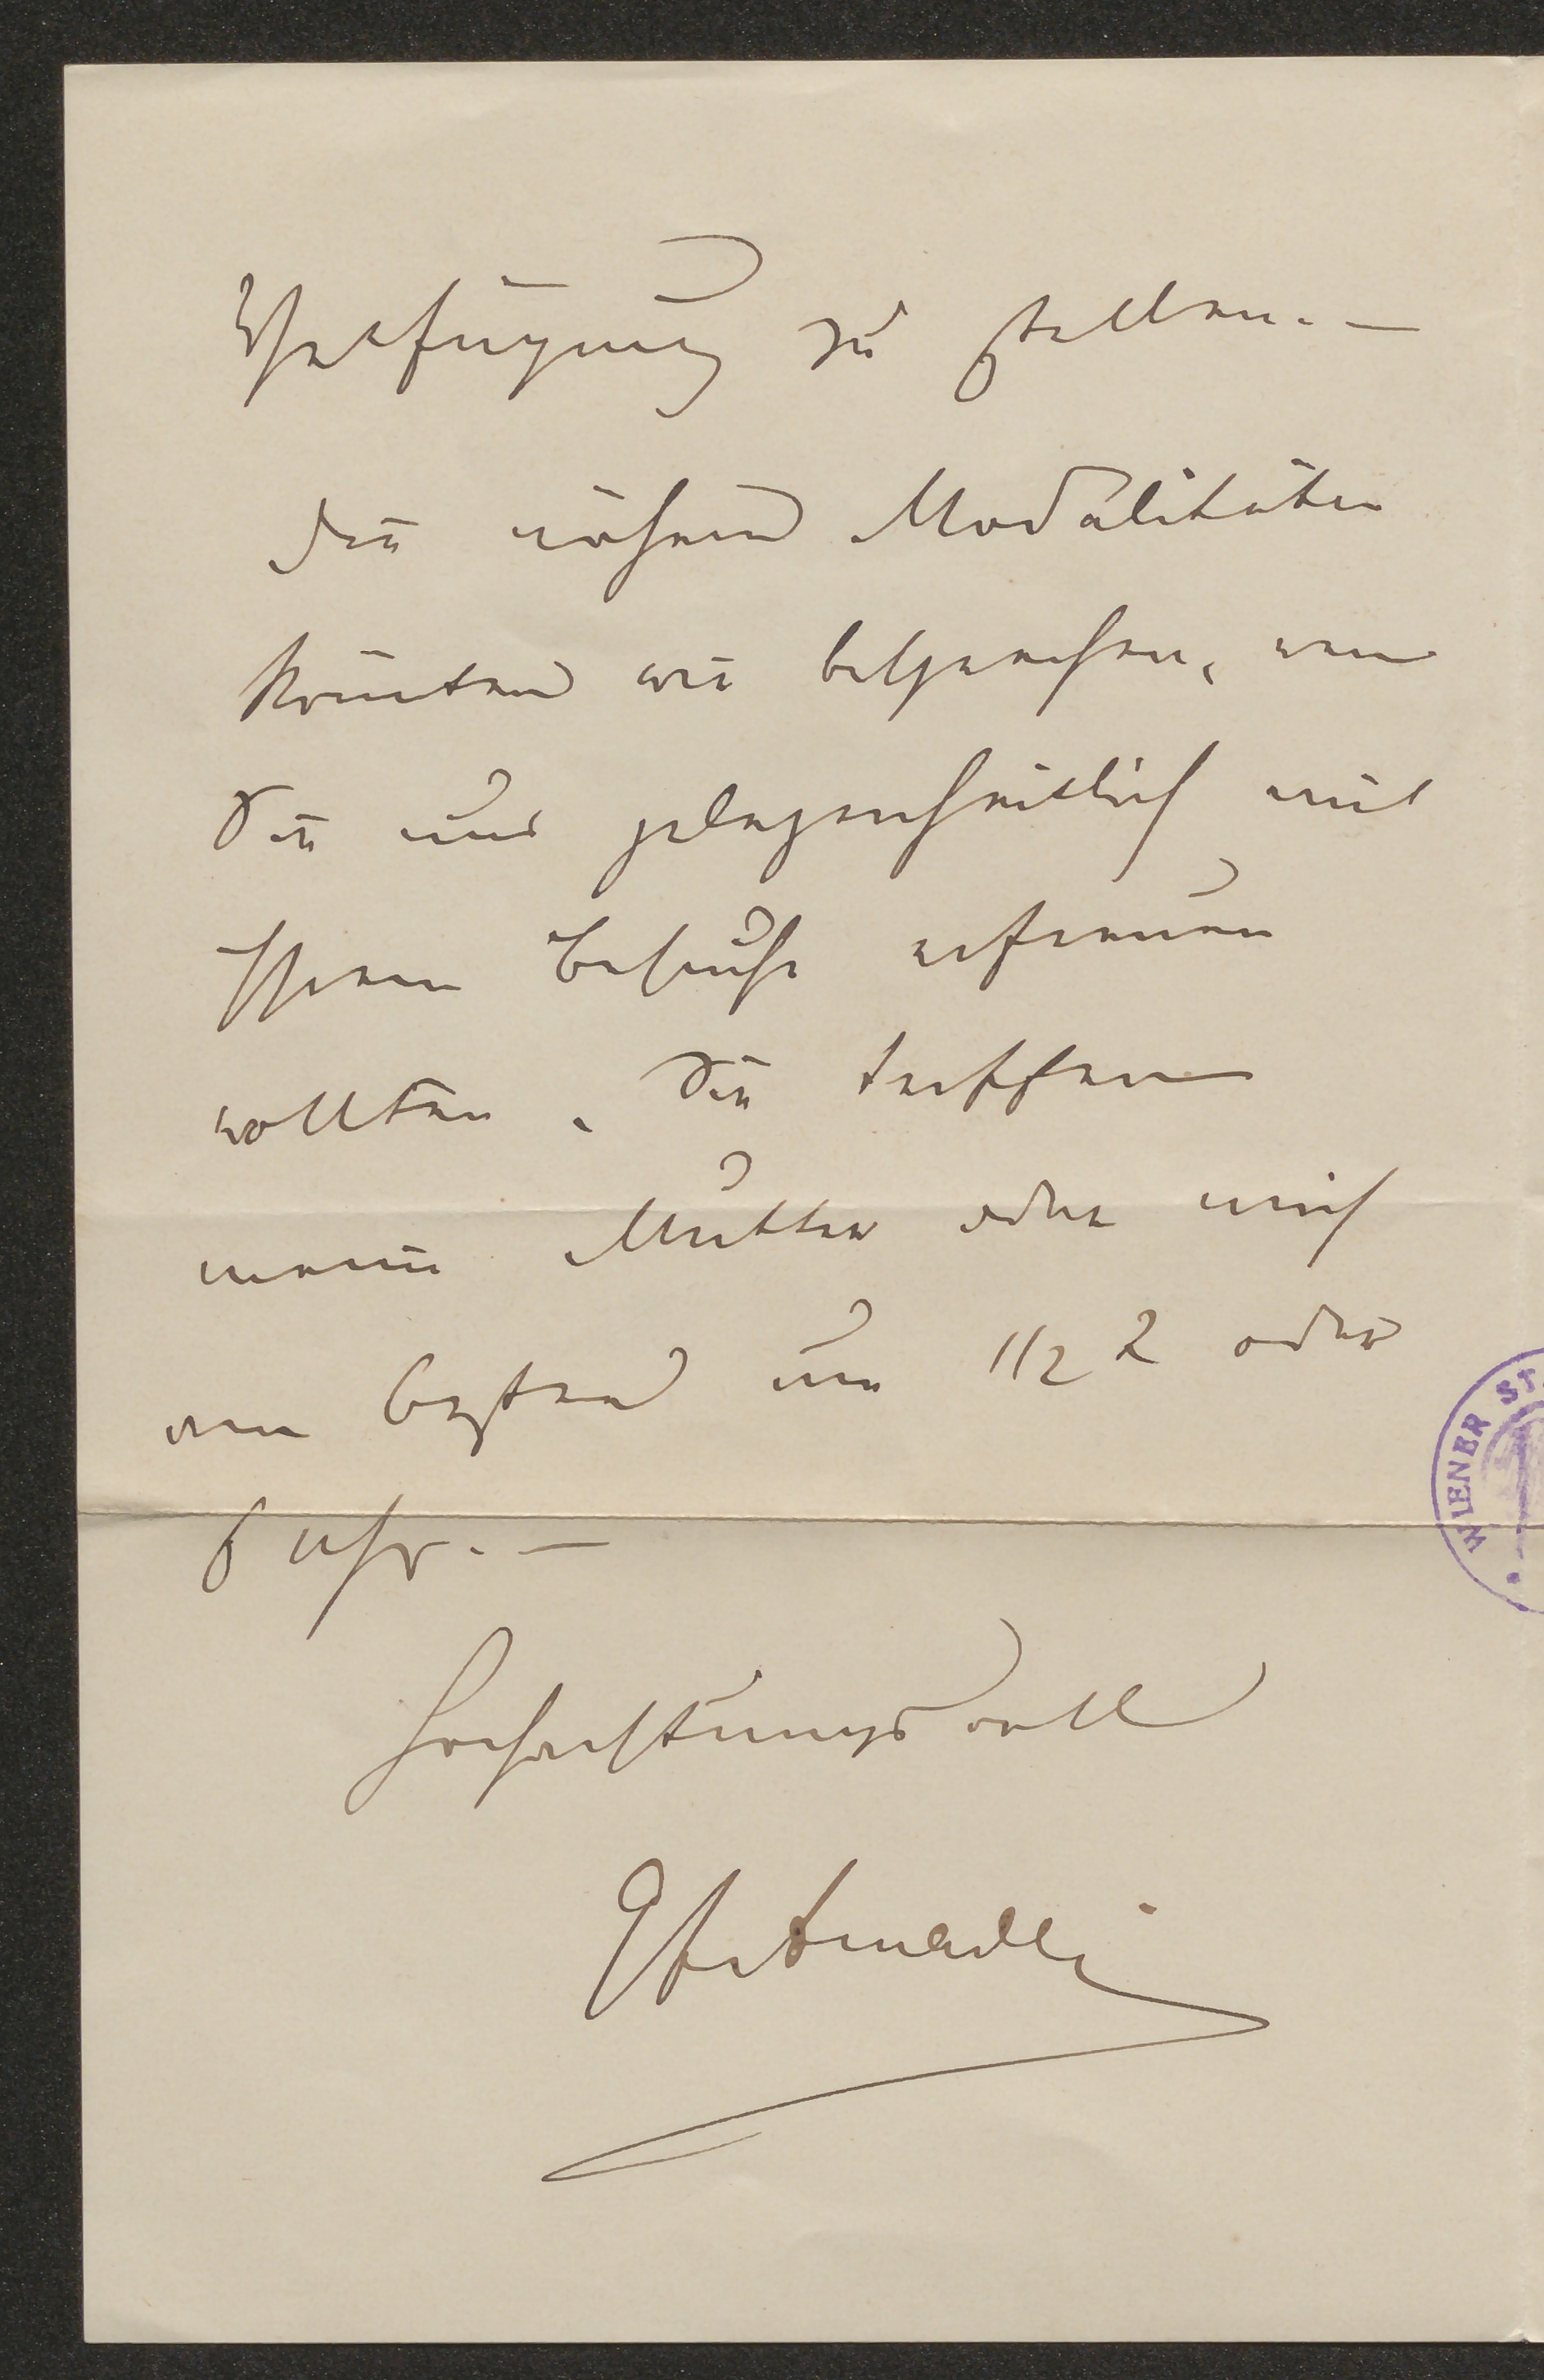 Verfügung zu stellen. —
Die näheren Modalitäten
könnten wir besprechen, wenn
Sie uns gelegenheitlich mit
Ihrem Besuche erfreuen
wollten. Sie treffen
meine Mutter oder mich
am besten um 1/2 2 oder
6 Uhr. —
Hochachtungsvoll
WIENER ST